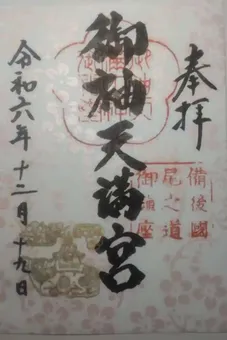 奉拝
備後國
尾之道
御鎮座
御袖天満宮
令和六年十二月十九日